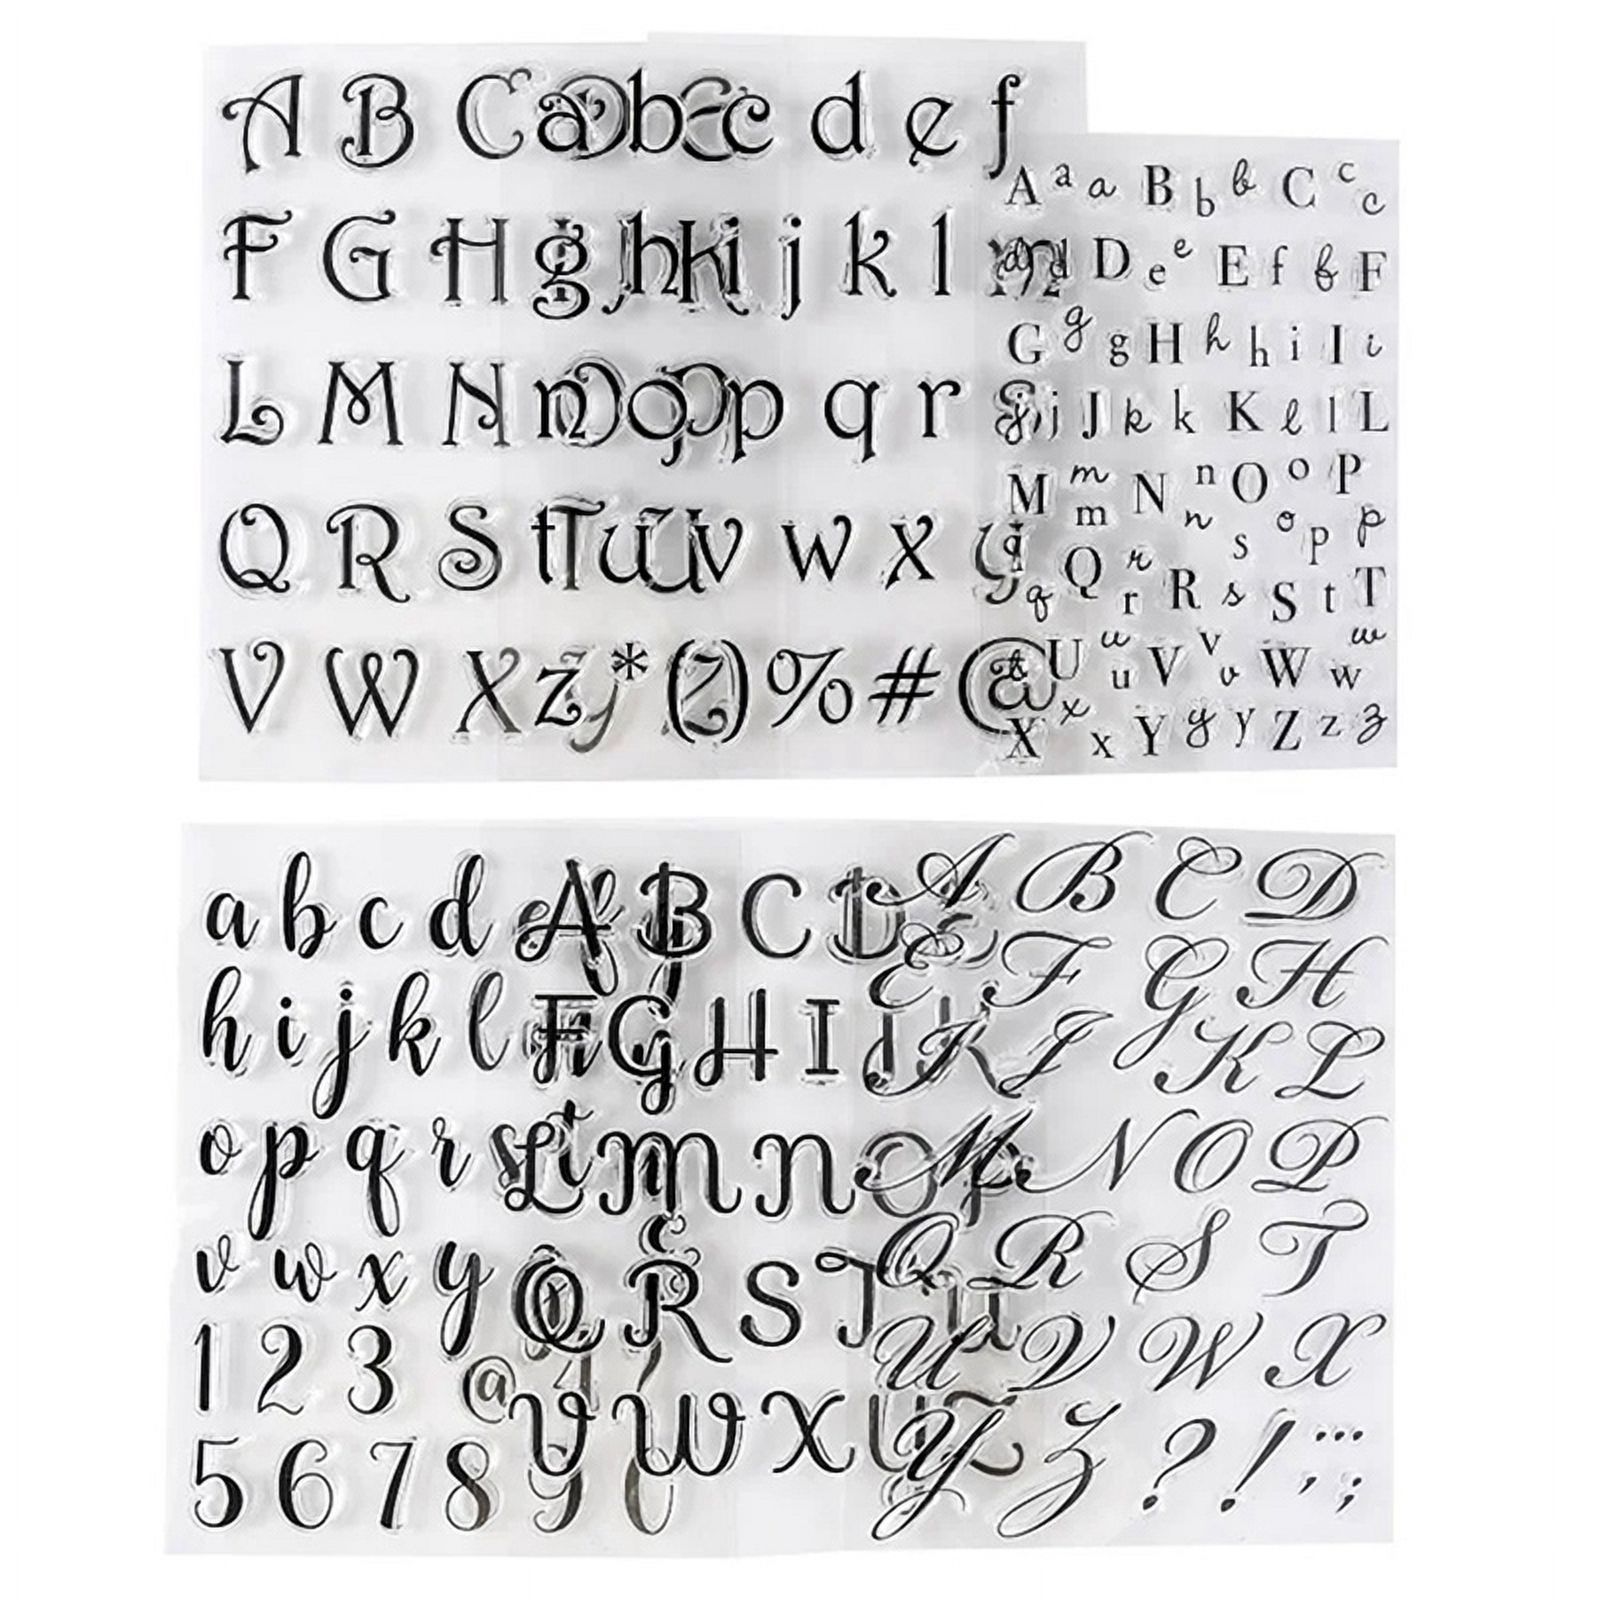 A B C a b c d e f
F G H g h i j k l
L M N n o p q r
Q R S t T u v w x y
V W X z * ( ) % # @
A a a B b b C c c
d d D e e E f f F
G g g H h h i I i
j j J k k K l l L
M m m N n n O o o P p p
q q Q r r R s s S t T
t U u u V v v W w w
X x x Y y y Z z z
a b c d A B C D
h i j k l F G H I J K
o p q r s t L M N O P
v w x y Q R S T U
1 2 3 @ 4
V W X Y Z
5 6 7 8 9 0
A B C D
E F G H
I J K L
M N O P
Q R S T
U V W X
Y Z ? !